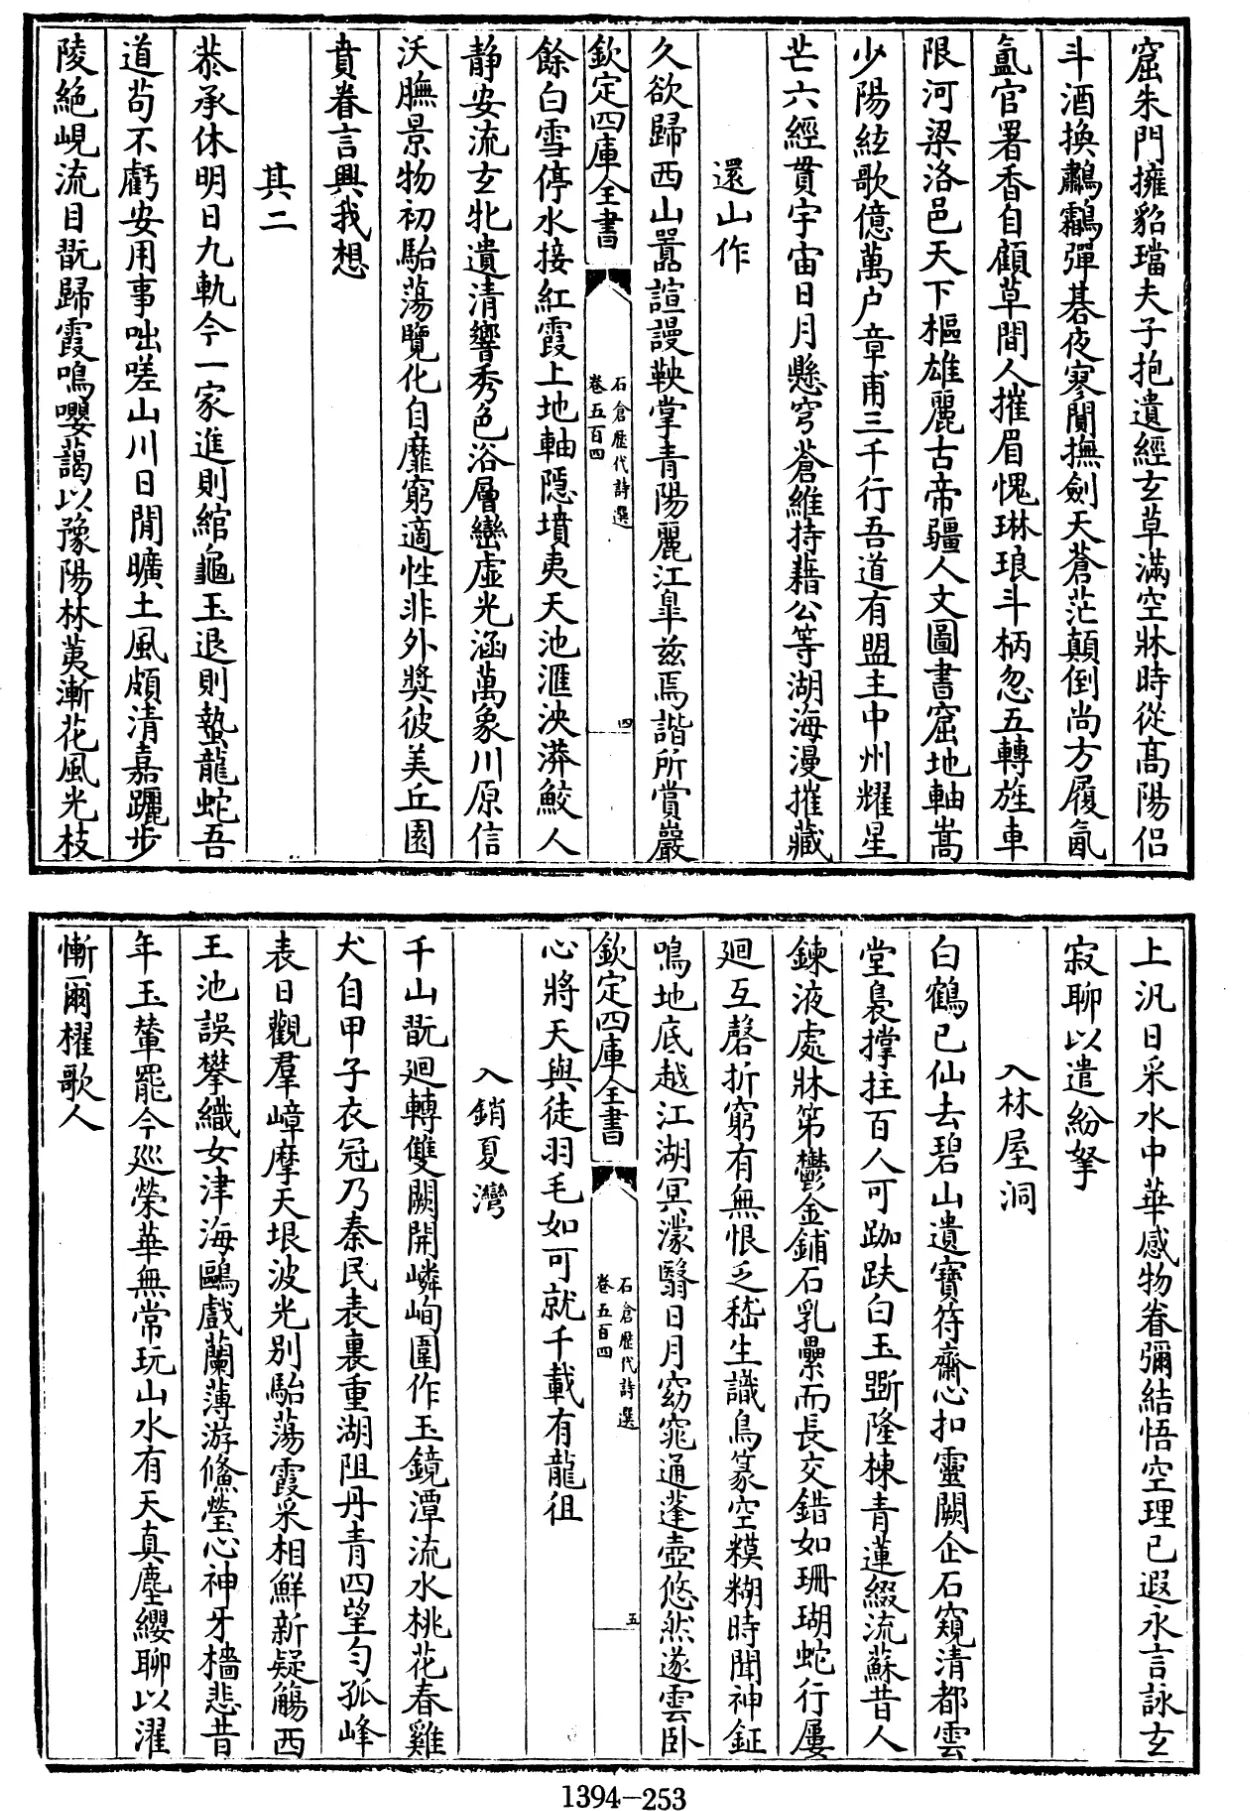 窟朱門擁貂璫夫子抱遺經玄草滿空牀時從髙陽侣
斗酒換鷫鸘彈碁夜寥閴撫劍天蒼茫顛倒尚方履氤
氲官署香自顧草間人摧眉愧琳琅斗柄忽五轉旌車
限河梁洛邑天下樞雄麗古帝疆人文圖書窟地軸嵩
少陽絃歌億萬户章甫三千行吾道有盟主中州耀星
芒六經貫宇宙日月懸穹蒼維持藉公等湖海漫摧藏
還山作
久欲歸西山嚣諠謾鞅掌青陽麗江臯兹焉諧所賞巖
欽定四庫全書
石倉歴代詩選
卷五百四
四
餘白雪停水接紅霞上地軸隱墳夷天池滙泱漭鮫人
静安流玄牝遺清響秀色浴層巒虚光涵萬象川原信
沃膴景物初駘蕩覽化自靡窮適性非外奬彼美丘園
賁眷言興我想
其二
恭承休明日九軌今一家進則綰龜玉退則蟄龍蛇吾
道苟不虧安用事咄嗟山川日閒曠土風頗清嘉躧步
陵絶峴流目翫歸霞鳴嚶藹以豫陽林荑漸花風光枝
上汎日采水中華感物眷彌結悟空理已遐永言詠玄
寂聊以遣紛拏
入林屋洞
白鶴已仙去碧山遺寶符齋心扣靈闕企石窺清都雲
堂裊撑拄百人可跏趺白玉斵隆棟青蓮綴流蘇昔人
鍊液處牀第鬱金鋪石乳纍而長交錯如珊瑚蛇行屢
廻互磬折窮有無恨乏嵇生識鳥篆空糢糊時聞神鉦
鳴地底越江湖冥濛翳日月窈窕通蓬壺悠然遂雲卧
欽定四庫全書
石倉歴代詩選
卷五百四
五
心將天與徒羽毛如可就千載有龍徂
入銷夏灣
千山翫廻轉雙闕開嶙峋圍作玉鏡潭流水桃花春雞
犬自甲子衣冠乃秦民表裏重湖阻丹青四望匀孤峰
表日觀羣嶂摩天垠波光别駘蕩霞采相鮮新疑觴西
王池誤攀織女津海鷗戲蘭薄游鯈瑩心神牙檣悲昔
年玉輦罷今廵榮華無常玩山水有天真塵纓聊以濯
慚爾櫂歌人
1394—253